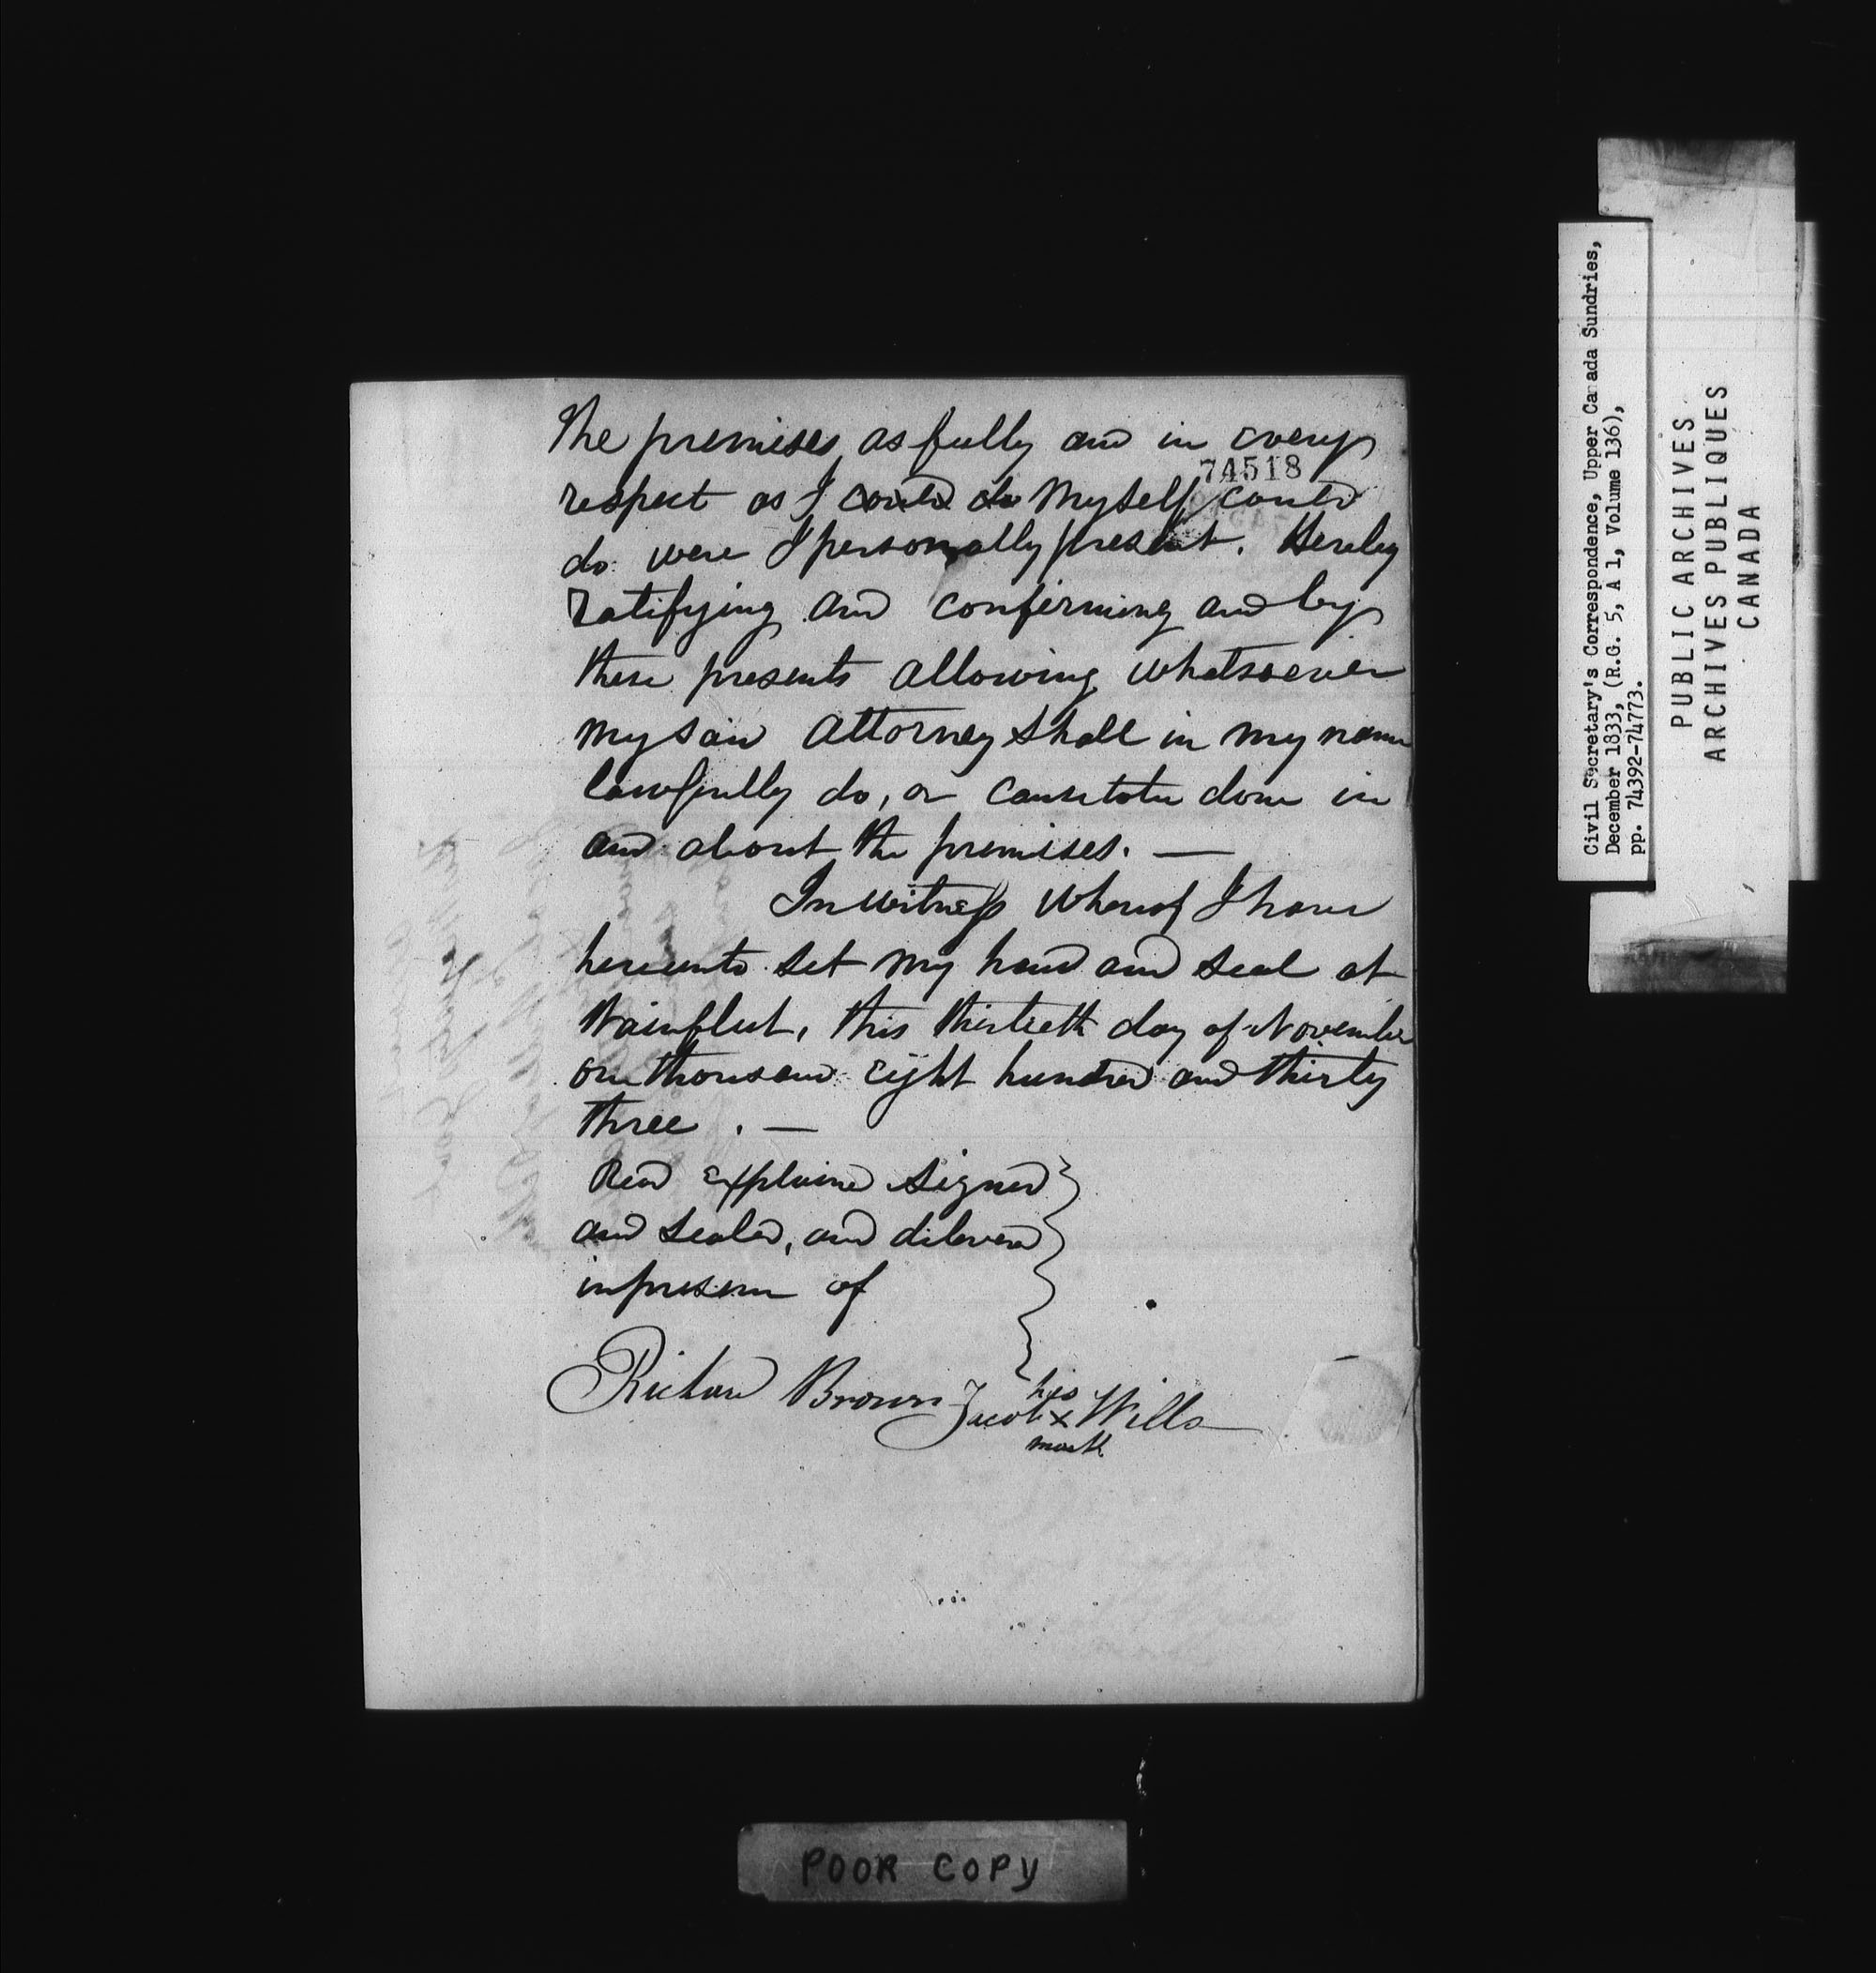 the premises, as fully and in every
74518
respect as I could do myself could
do were I personally present. Hereby
ratifying and confirming and by
these presents allowing whatsoever
my said attorney shall in my name
lawfully do, or cause to be done in
and about the premises. —
In witness whereof I have
hereunto set my hand and seal at
Wainfleet, this thirtieth day of November
one thousand eight hundred and thirty
three . —
Read explained signed
and sealed, and dilevered
in presence of
Richard Brown
his
Jacob x Wills
mark
Civil Secretary's Correspondence, Upper Canada Sundries,
December 1833, (R.G. 5, A 1, Volume 136),
pp. 74392-74773.
PUBLIC ARCHIVES
ARCHIVES PUBLIQUES
CANADA
POOR COPY